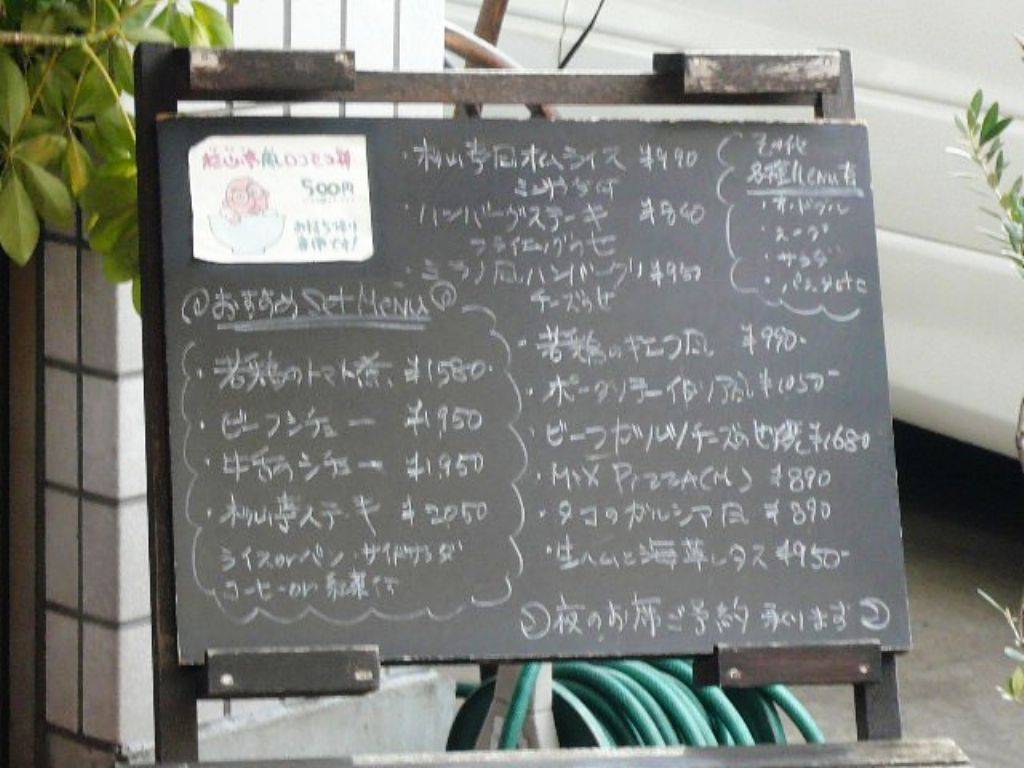 500円
お持ち帰り
・杦山亭風オムライス ¥990
・ハンバーグステーキ ¥840
フライエッグのせ
・ミラノ風ハンバーグ ¥950
チーズのせ
その他
各種Menu有
・オードブル
・スープ
・サラダ
・パスタetc
おすすめ Set Menu
・若鶏のトマト煮 ¥1580-
・ビーフシチュー ¥1950
・牛舌のシチュー ¥1950
・杦山亭ステーキ ¥2050
ライスorパン・サイドサラダ
コーヒーor紅茶付
・若鶏の ¥990-
・ポークソテー ¥1050-
・ビーフ チーズのせ焼 ¥1680
・MIX PIZZA(M) ¥890
・タコのガルシア風 ¥890
・生ハムと海草レタス ¥950-
夜のお席ご予約承ります